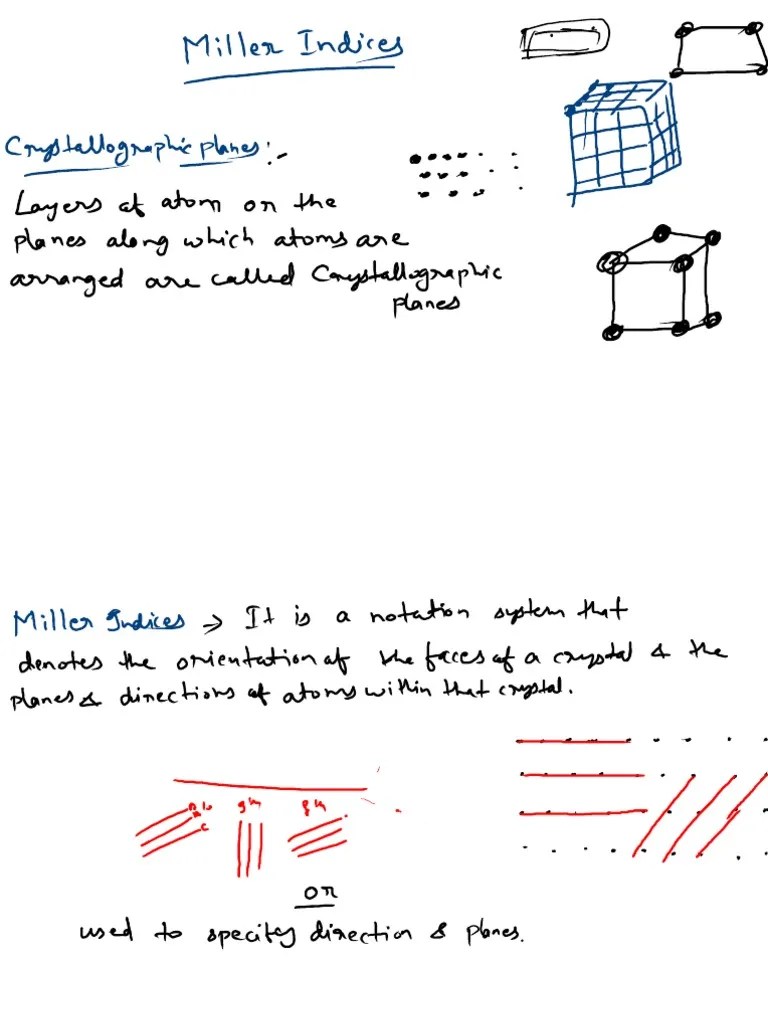 Miller Indices
Crystallographic planes:-
Layers of atom or the
planes along which atoms are
arranged are called Crystallographic
planes
Miller Indices → It is a notation system that
denotes the orientation of the faces of a crystal & the
planes & directions of atoms within that crystal.
or
used to specify direction & planes.